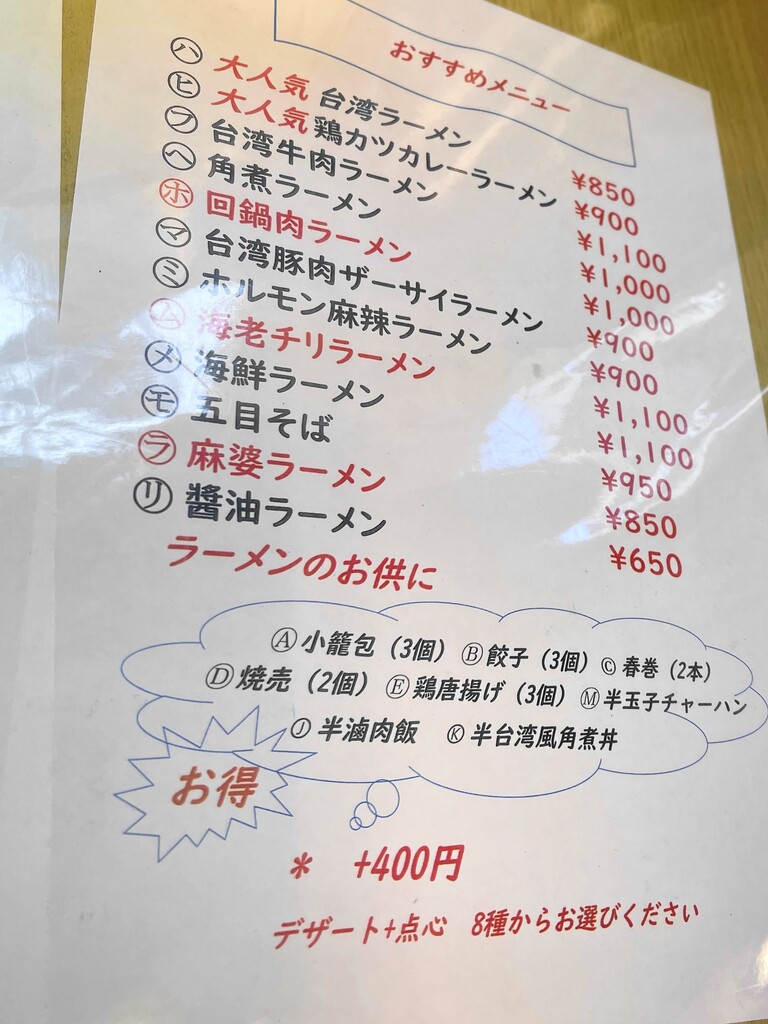 おすすめメニュー
㋩ 大人気 台湾ラーメン ¥850
㋪ 大人気 鶏カツカレーラーメン ¥900
㋫ 台湾牛肉ラーメン ¥1,100
㋬ 角煮ラーメン ¥1,000
㋭ 回鍋肉ラーメン ¥1,000
㋮ 台湾豚肉ザーサイラーメン ¥900
㋯ ホルモン麻辣ラーメン ¥900
㋰ 海老チリラーメン ¥1,100
㋱ 海鮮ラーメン ¥1,100
㋲ 五目そば ¥950
㋶ 麻婆ラーメン ¥850
㋷ 醬油ラーメン ¥650
ラーメンのお供に
Ⓐ 小籠包（3個） Ⓑ 餃子（3個） Ⓒ 春巻（2本）
Ⓓ 焼売（2個） Ⓔ 鶏唐揚げ（3個） Ⓜ 半玉子チャーハン
Ⓙ 半滷肉飯 Ⓚ 半台湾風角煮丼
お得
＊ +400円
デザート+点心 8種からお選びください